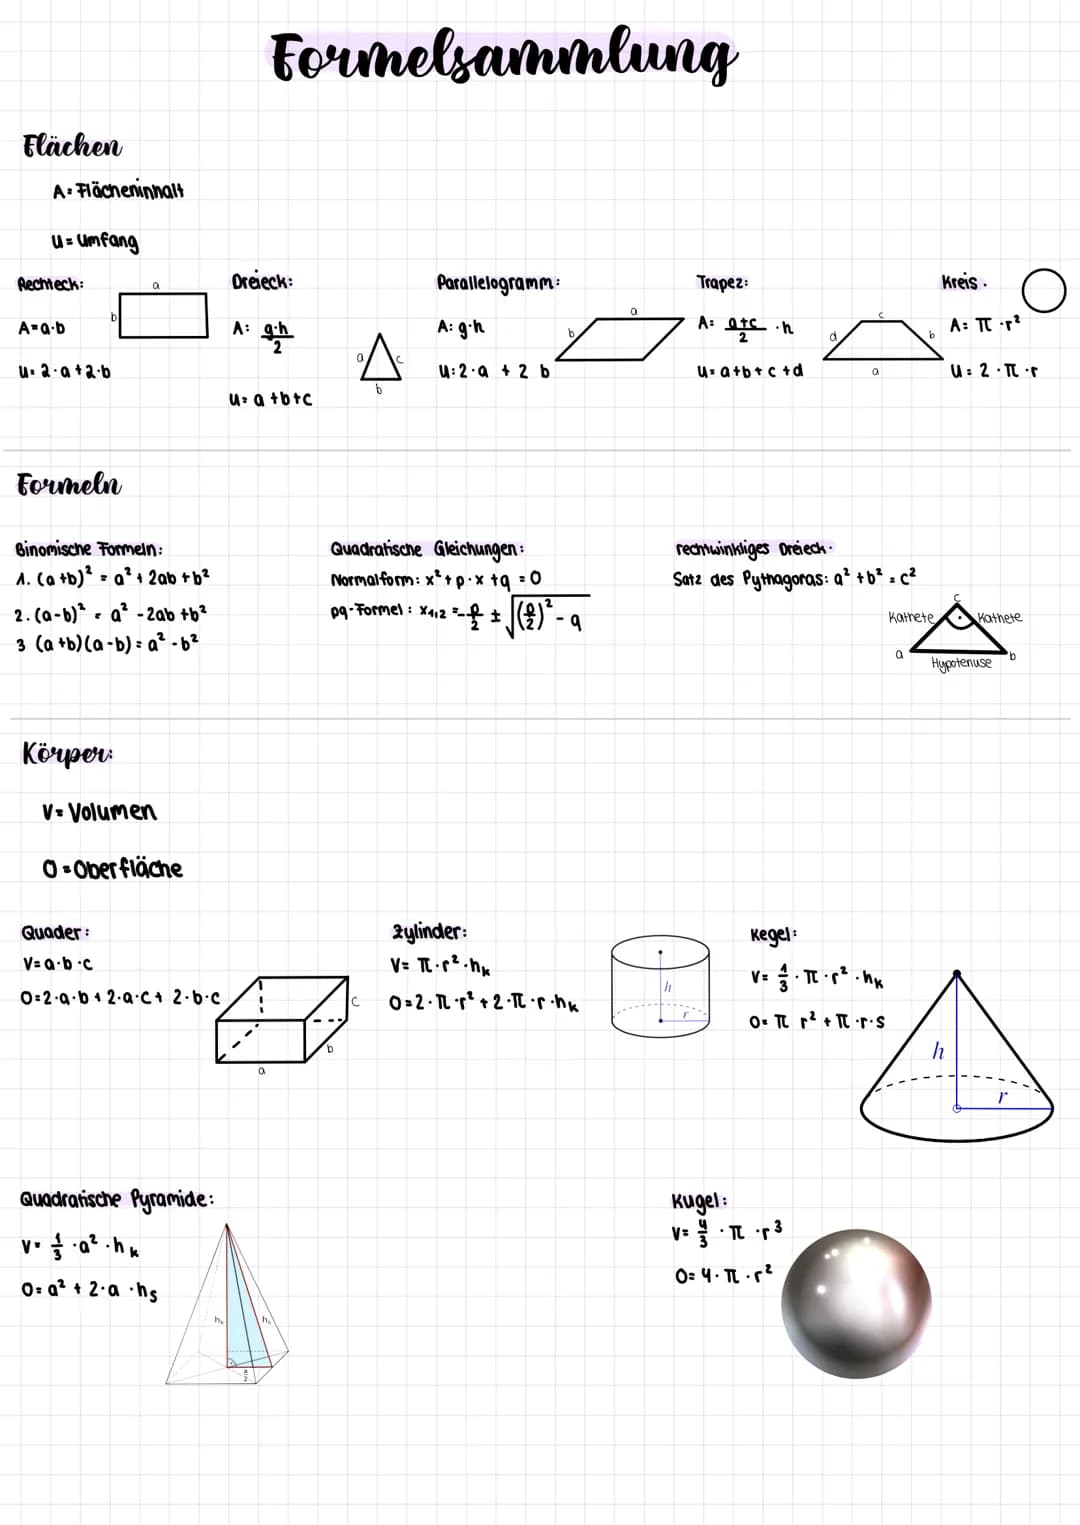 Formelsammlung
Flächen
A = Flächeninhalt
u = Umfang
Rechteck:
a
b
A = a·b
u = 2·a + 2·b
Dreieck:
A: g·h/2
u = a + b + c
a
c
b
Parallelogramm:
A: g·h
u: 2·a + 2 b
a
b
Trapez:
A: a+c/2 · h
u = a + b + c + d
c
d
b
a
Kreis.
A = π · r²
u = 2 · π · r
Formeln
Binomische Formeln:
1. (a+b)² = a² + 2ab + b²
2. (a-b)² = a² - 2ab + b²
3 (a+b)(a-b) = a² - b²
Quadratische Gleichungen:
Normalform: x² + p·x + q = 0
pq-Formel: x₁,₂ = -p/2 ± √((p/2)² - q)
rechtwinkliges Dreieck.
Satz des Pythagoras: a² + b² = c²
c
Kathete
Kathete
a
b
Hypotenuse
Körper:
V = Volumen
O = Oberfläche
Quader:
V = a·b·c
O = 2·a·b + 2·a·c + 2·b·c
c
b
a
Zylinder:
V = π·r²·hₖ
O = 2·π·r² + 2·π·r·hₖ
h
r
Kegel:
V = 1/3 · π · r² · hₖ
O = π r² + π · r · s
h
r
Quadratische Pyramide:
V = 1/3 · a² · hₖ
O = a² + 2·a · hₛ
hₖ
hₛ
a/2
Kugel:
V = 4/3 · π · r³
O = 4 · π · r²